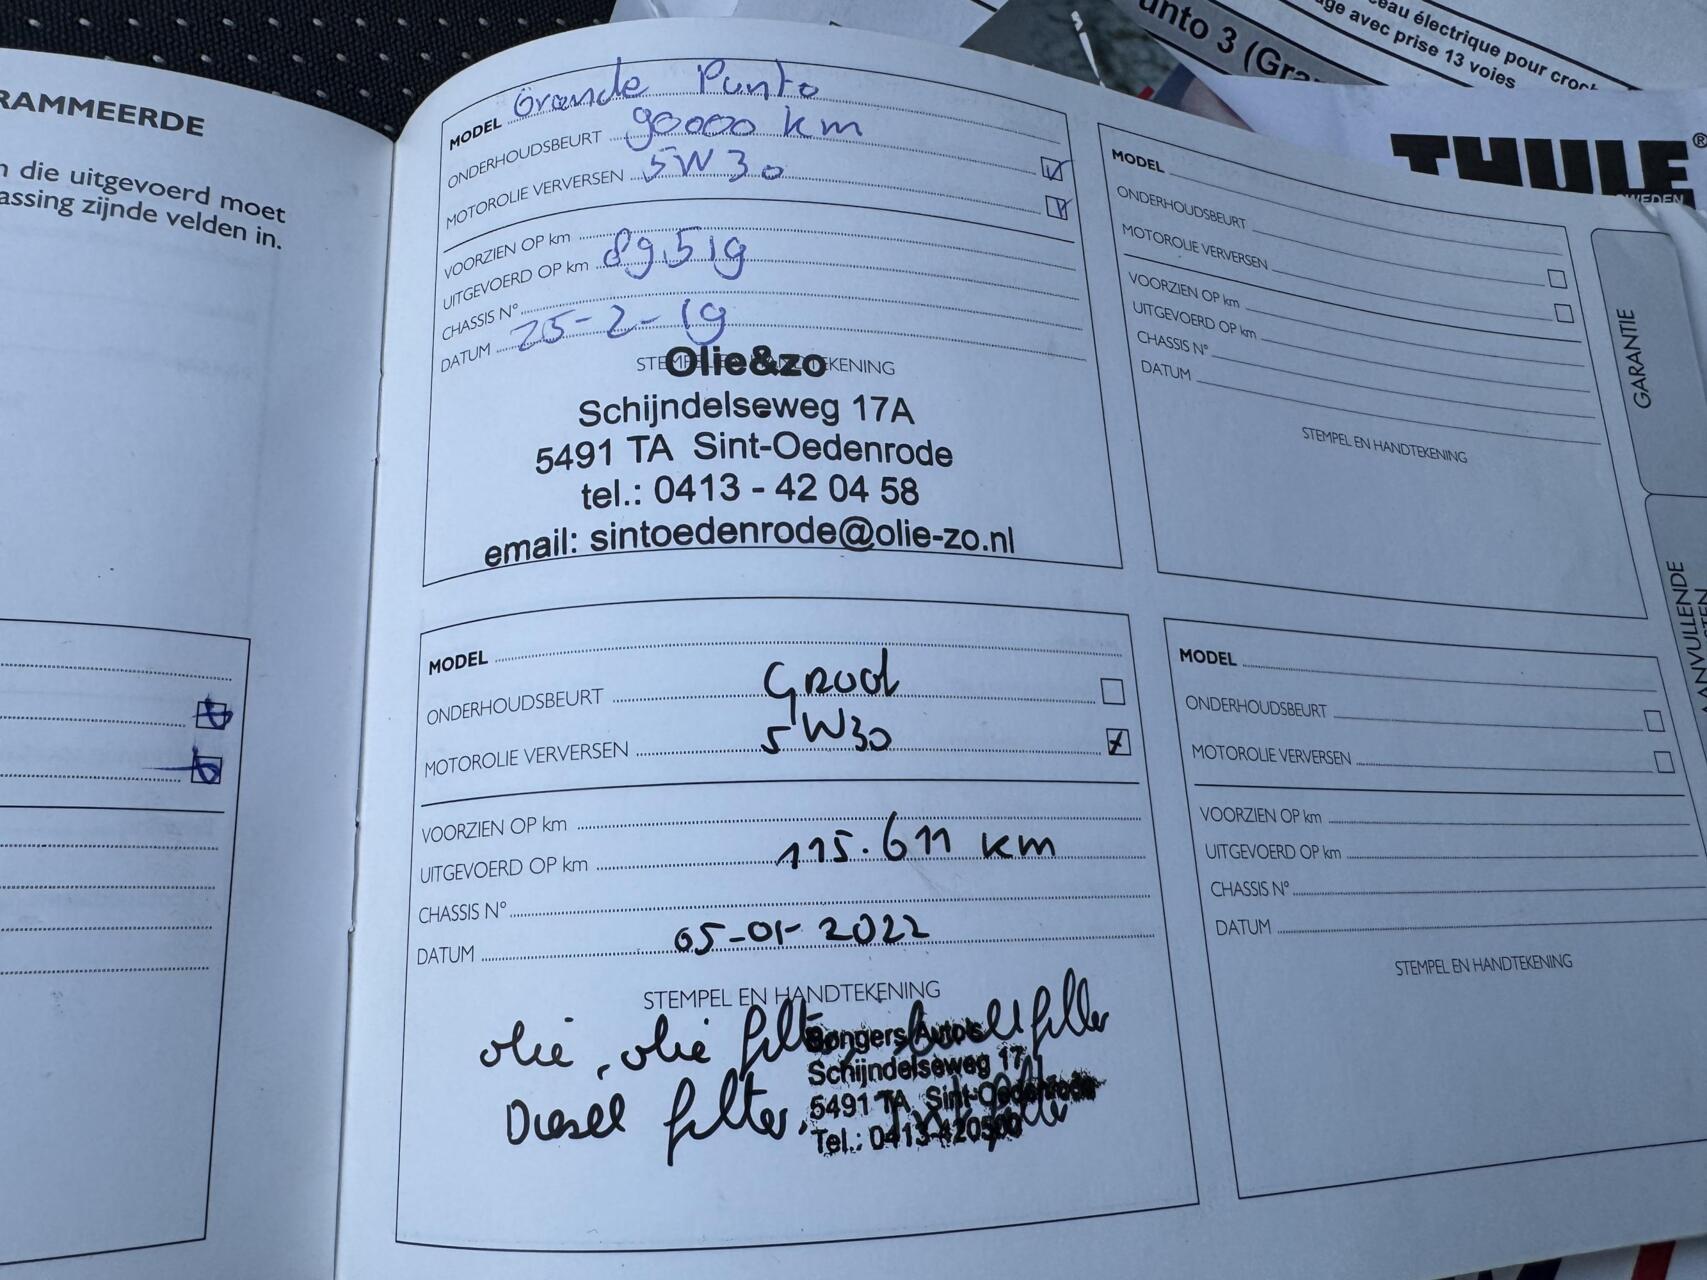 RAMMEERDE
n die uitgevoerd moet
assing zijnde velden in.
MODEL Grande Punto
ONDERHOUDSBEURT 90000 km
MOTOROLIE VERVERSEN 5W30
VOORZIEN OP km
UITGEVOERD OP km 89519
CHASSIS N°
DATUM 25-2-19
STEMPEL EN HANDTEKENING
Olie&zo
Schijndelseweg 17A
5491 TA Sint-Oedenrode
tel.: 0413 - 42 04 58
email: sintoedenrode@olie-zo.nl
MODEL
ONDERHOUDSBEURT Groot
MOTOROLIE VERVERSEN 5W30
VOORZIEN OP km
UITGEVOERD OP km 115.611 km
CHASSIS N°
DATUM 05-01-2022
STEMPEL EN HANDTEKENING
olie, olie filter, filter
Diesel filter.
Bongers Auto's
Schijndelseweg 17
5491 TA Sint-Oedenrode
Tel.: 0413-420500
MODEL
ONDERHOUDSBEURT
MOTOROLIE VERVERSEN
VOORZIEN OP km
UITGEVOERD OP km
CHASSIS N°
DATUM
STEMPEL EN HANDTEKENING
MODEL
ONDERHOUDSBEURT
MOTOROLIE VERVERSEN
VOORZIEN OP km
UITGEVOERD OP km
CHASSIS N°
DATUM
STEMPEL EN HANDTEKENING
GARANTIE
AANVULLENDE
unto 3 (Gra
eau électrique pour croc
ge avec prise 13 voies
THULE®
SWEDEN